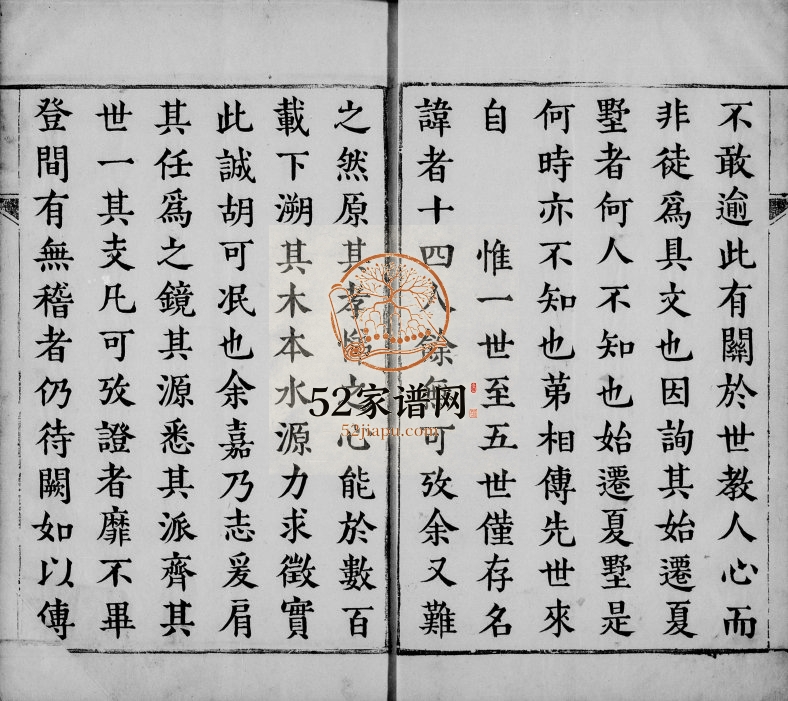 不敢逾此有關於世教人心而
非徒爲具文也因詢其始遷夏
墅者何人不知也始遷夏墅是
何時亦不知也苐相傳先世來
自 惟一世至五世僅存名
諱者十四人餘無可攷余又難
之然原其孝 之心能於數百
載下溯其木本水源力求徵實
此誠胡可泯也余嘉乃志爰肩
其任爲之鏡其源悉其派齊其
世一其支凡可攷證者靡不畢
登間有無稽者仍待闕如以傳
52家谱网
52jiapu.com